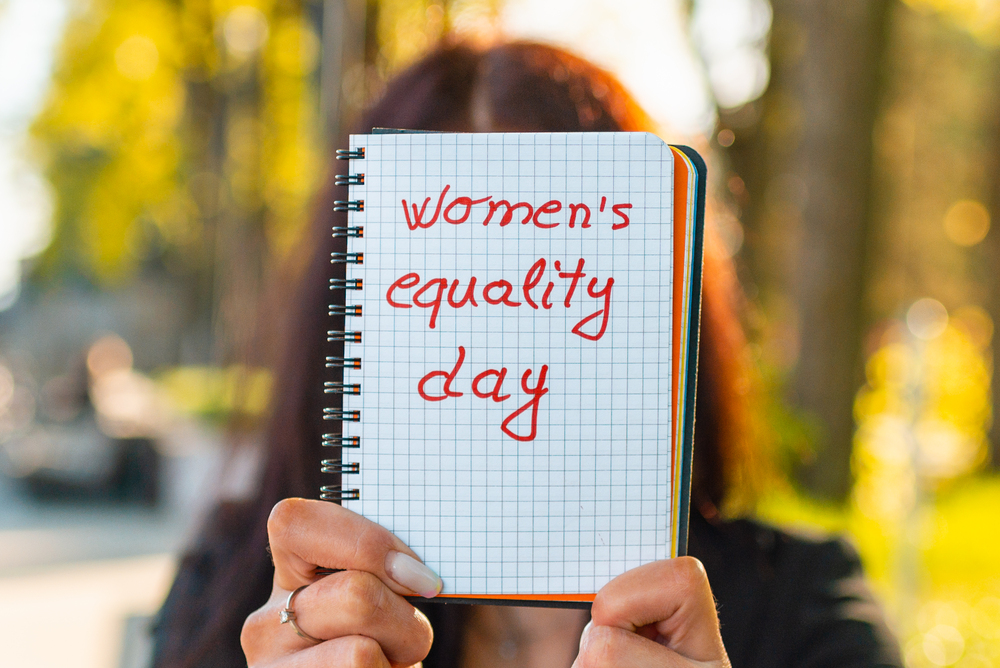 women's
equality
day